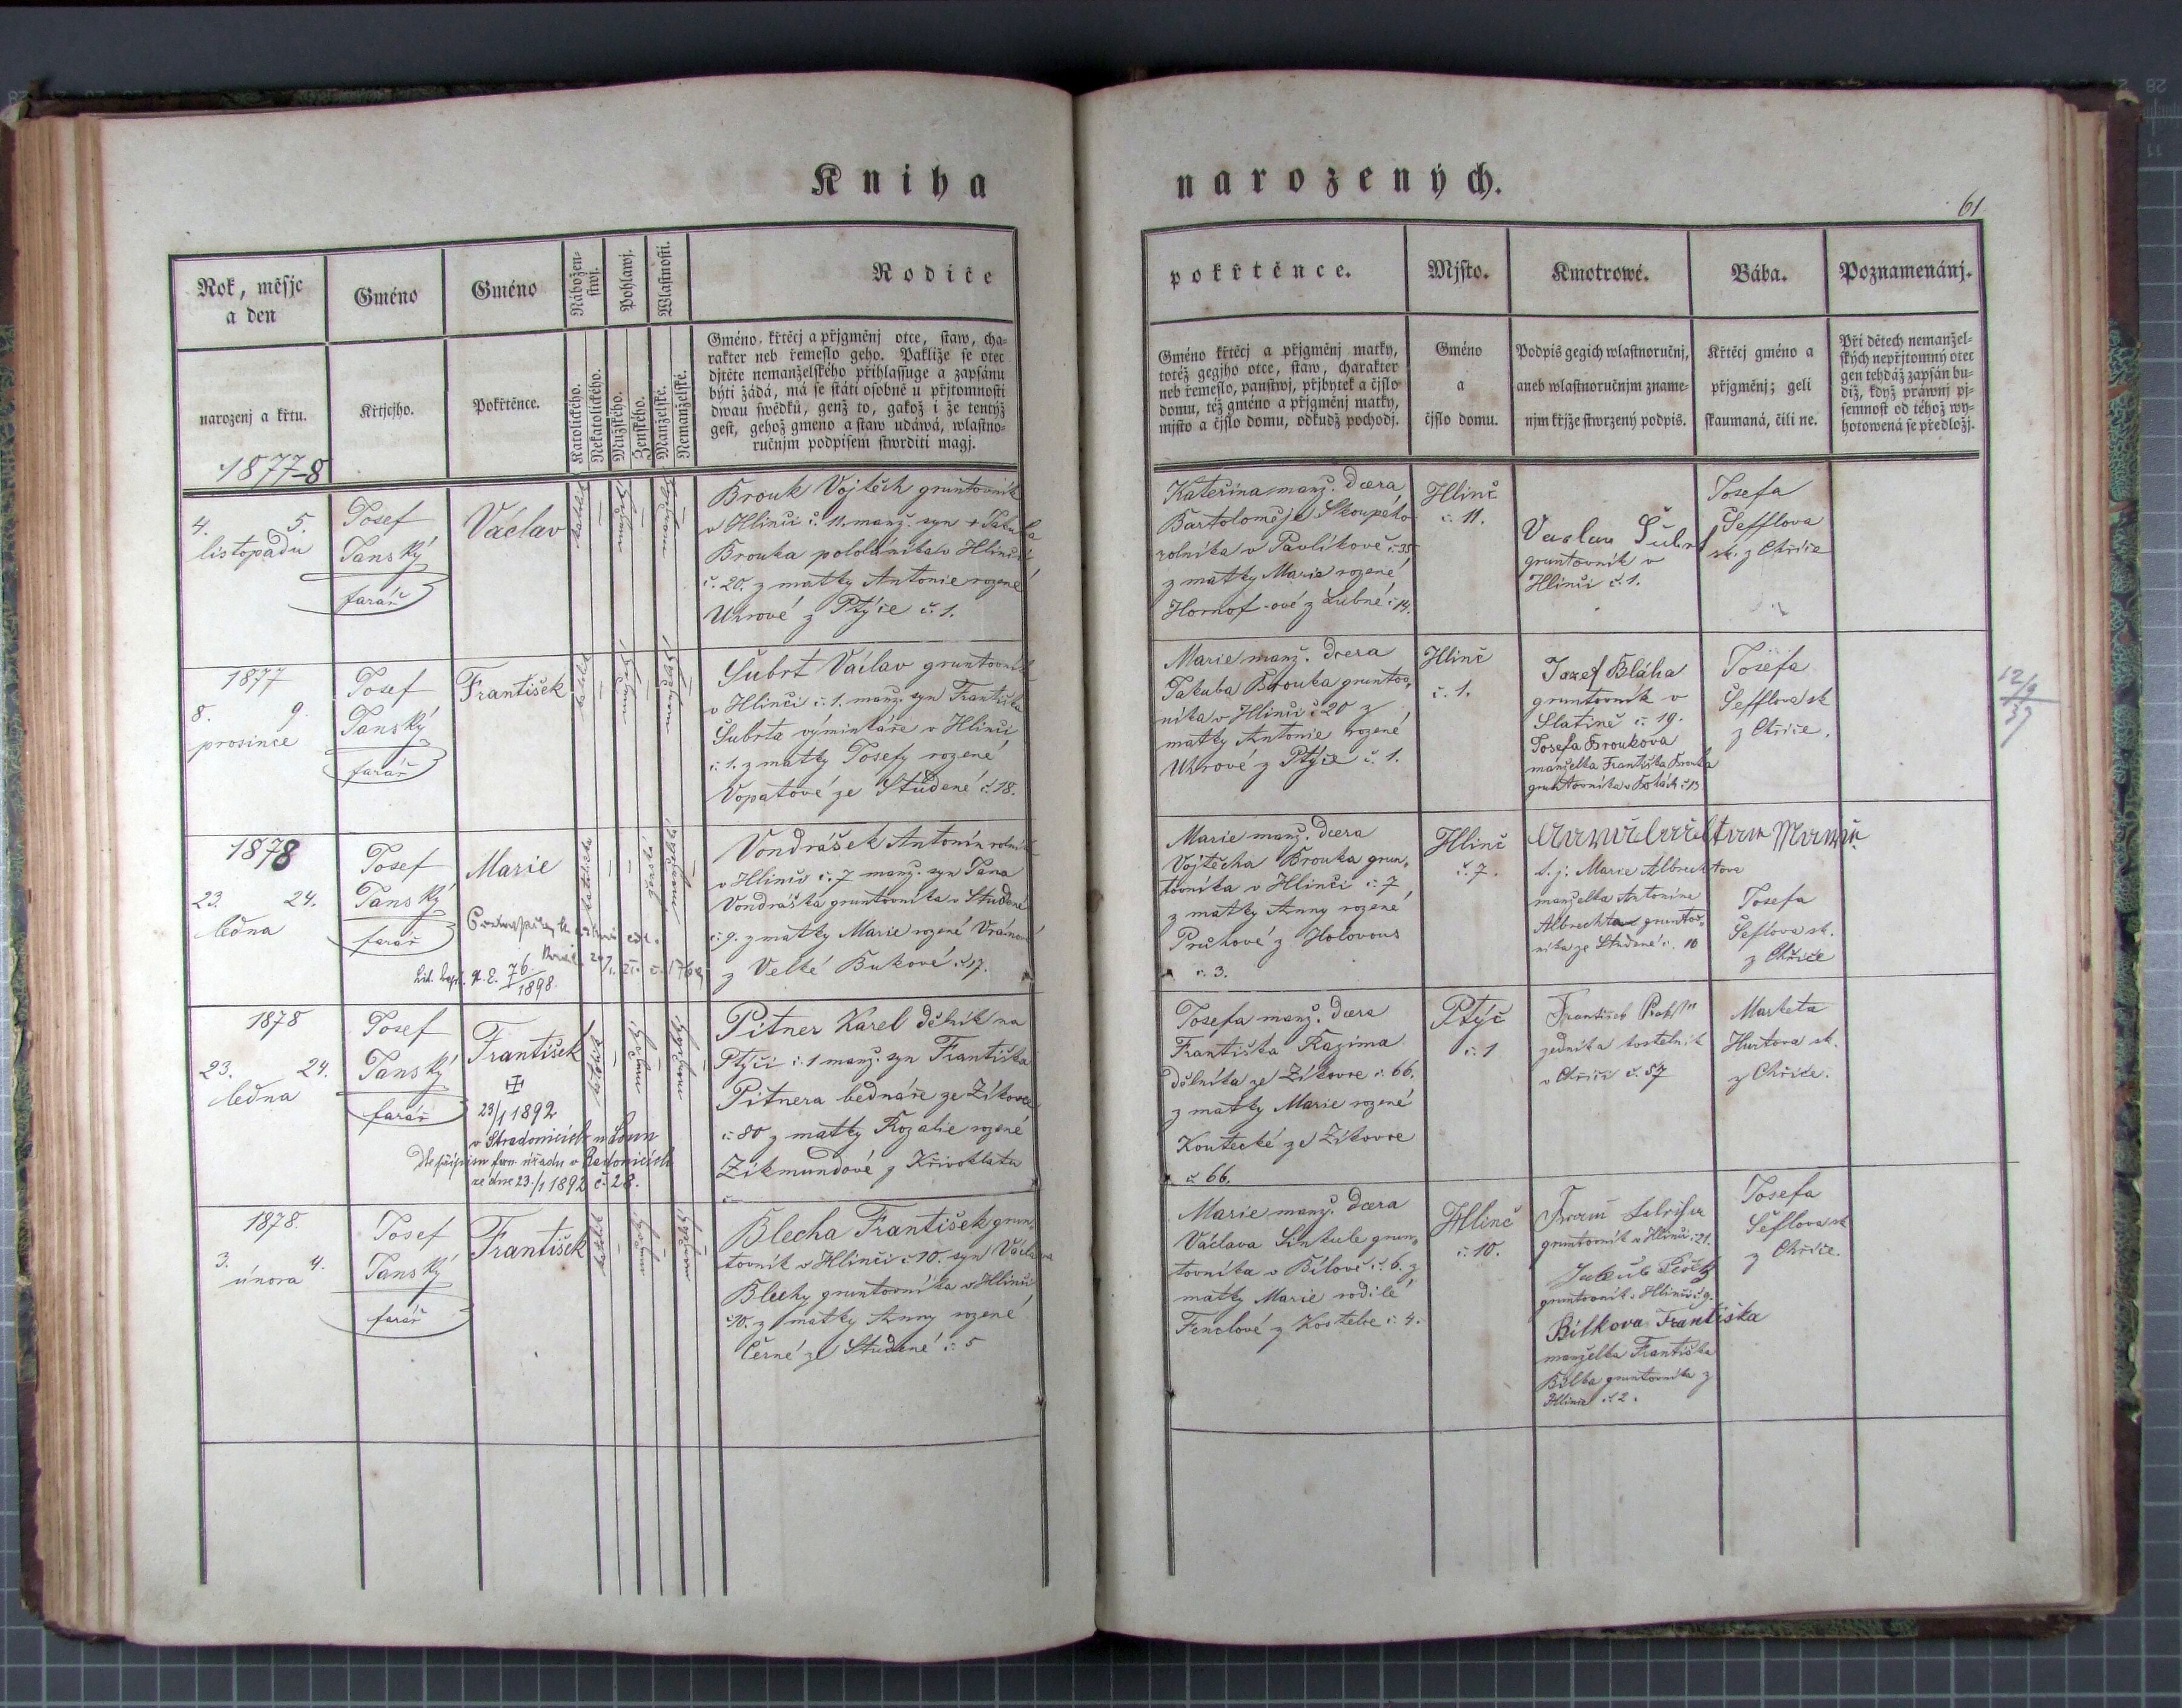 Kniha narozených.
61
Rok, měsjc
a den
narozenj a křtu.
1877-8
Gméno
Křtjcjho.
Gméno
Pokřtěnce.
Nábožen-
stwj.
Katolického.
Nekatolického.
Pohlawj.
Mužského.
Ženského.
Wlastnosti.
Manželské.
Nemanželské.
Rodiče
Gméno křtěcj a přjgměnj otce, staw, cha-
rakter neb řemeslo geho. Pakliže se otec
djtěte nemanželského přihlassuge a zapsánu
býti žádá, má se státi osobně u přjtomnosti
dwau swědků, genž to, gakož i že tentýž
gest, gehož gmeno a staw udáwá, wlastno-
ručnjm podpisem stwrditi magj.
pokřtěnce.
Gméno křtěcj a přjgměnj matky,
totéž gegjho otce, staw, charakter
neb řemeslo, panstwj, přjbytek a čjslo
domu, též gméno a přjgměnj matky,
mjsto a čjslo domu, odkudž pochodj.
Mjsto.
Gméno
a
čjslo domu.
Kmotrowé.
Podpis gegich wlastnoručnj,
aneb wlastnoručnjm zname-
njm křjže stwrzený podpis.
Bába.
Křtěcj gméno a
přjgměnj; geli
skaumaná, čili ne.
Poznamenánj.
Při dětech nemanžel-
ských nepřjtomný otec
gen tehdáž zapsán bu-
diž, když práwnj pj-
semnost od téhož wy-
hotowená se předložj.
4. 5.
listopadu
Josef
Janský
farář
Václav
Brouk Vojtěch gruntovník
v Hlinči č. 11. manž. syn + Jakuba
Brouka pololáníka v Hlinči
č. 20. z matky Antonie rozené
Uhrové z Ptýče č. 1.
Kateřina manž. dcera
Bartoloměje Skoupého
rolníka v Pavlíkově č. 35
z matky Marie rozené
Hornof-ové z Lubné č. 14.
Hlinč
č. 11.
Vaclav Šubrt
gruntovník v
Hlinči č. 1.
Josefa
Šefflova
sk. z Chříče
1877
8. 9.
prosince
Josef
Janský
farář
František
Šubrt Václav gruntovník
v Hlinči č. 1. manž. syn Františka
Šubrta výminkáře v Hlinči
č. 1. z matky Josefy rozené
Vopatové ze Studené č. 18.
Marie manž. dcera
Jakuba Brouka gruntov-
níka v Hlinči č 20 z
matky Antonie rozené
Uhrové z Ptýče č. 1.
Hlinč
č. 1.
Jozef Bláha
gruntovník v
Slatině č. 19.
Josefa Broukova
manželka Františka Brouka
gruntovníka v
Josefa
Šefflova sk
z Chříče.
12/9
37
1878
23. 24.
ledna
Josef
Janský
farář
Marie
76.
1898.
Vondrášek Antonín rolník
v Hlinči č. 7 manž. syn Jana
Vondráška gruntovníka v Studené
č. 9. z matky Marie rozené Vránové
z Velké Bukové č. 17.
Marie manž. dcera
Vojtěcha Brouka grun-
tovníka v Hlinči č. 7
z matky Anny rozené
Pruhové z Holovous
č. 3.
Hlinč
č. 7.
t. j. Marie Albrechtova
manželka Antonína
Albrechta grunto-
níka ze Studené č. 10
Josefa
Šeflova sk.
z Chříče
1878
23. 24.
ledna
Josef
Janský
farář
František
23/1 1892
v Stradonicích u Loun
Dle přípisu far. úřadu v Radonicích
ze dne 23./1 1892 č. 28.
Pitner Karel dělník na
Ptýči č. 1 manž. syn Františka
Pitnera bednáře ze Zíkovce
č. 80 z matky Rozalie rozené
Zikmundové z Křivoklátu
Josefa manž. dcera
Františka Kazima
dělníka ze Zíkovce č. 66.
z matky Marie rozené
Koutecké ze Zíkovce
č. 66.
Ptýč
č. 1
František
kostelník
v Chříči č. 57
Marketa
Hurtova sk.
z Chříče.
1878.
3. 4.
února
Josef
Janský
farář
František
Blecha František grun-
tovník v Hlinči č 10. syn Václava
Blechy gruntovníka v Hlinči
č 10. z matky Anny rozené
Černé ze Studené č. 5
Marie manž. dcera
Václava Sinkule grun-
tovníka v Bílově č. 6. z
matky Marie rodilé
Fenclové z Kostelce č. 4.
Hlinč
č. 10.
gruntovník v Hlinči č. 21.
Jakub
gruntovník v Hlinči č 9.
Bílkova Františka
manželka Františka
Bílka gruntovníka z
Hlinče č. 2.
Josefa
Šeflova sk
z Chříče.